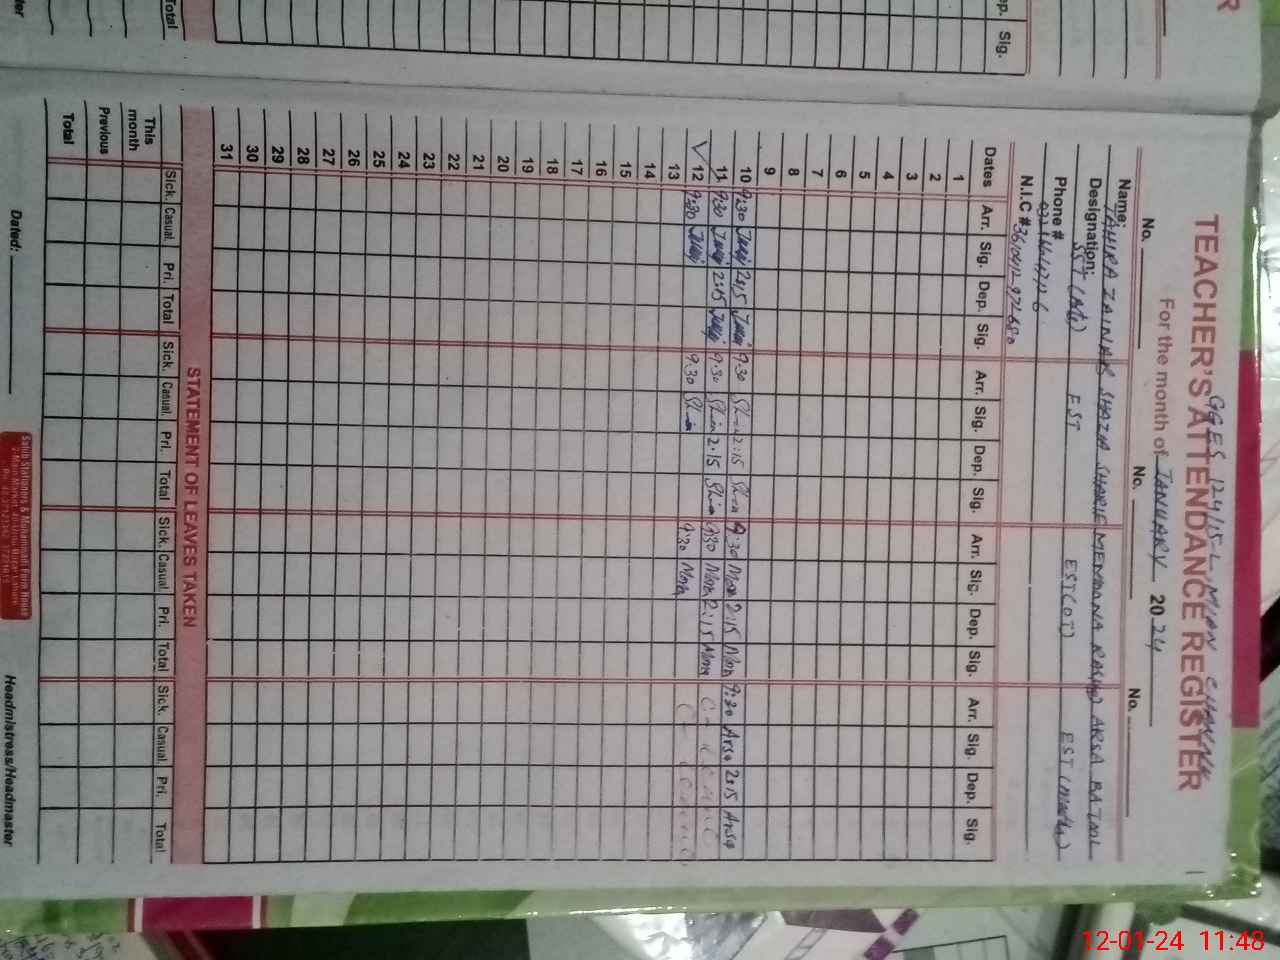 TEACHER'S ATTENDANCE REGISTER
GGES 124/15-L MIAN CHANNU
For the month of JANUARY 2024
No. No. No.
Name: TAHIRA ZAINAB SHAZIA SHARIF MEMOONA RASHID ARSA BATOOL
Designation: SST (Arts) EST EST(OT) EST (Maths)
Phone #
N.I.C #
Dates Arr. Sig. Dep. Sig. Arr. Sig. Dep. Sig. Arr. Sig. Dep. Sig. Arr. Sig. Dep. Sig.
1
2
3
4
5
6
7
8
9
10 9:30 2:15 9:30 2:15 9:30 2:15 9:30 Arsa 2:15 Arsa
11 9:30 2:15 9:30 2:15 9:30 2:15
12 9:30 9:30 9:30
13
14
15
16
17
18
19
20
21
22
23
24
25
26
27
28
29
30
31
STATEMENT OF LEAVES TAKEN
Sick. Casual. Pri. Total Sick. Casual. Pri. Total Sick. Casual. Pri. Total Sick. Casual. Pri. Total
This month
Previous
Total
Dated: Headmistress/Headmaster
12-01-24 11:48